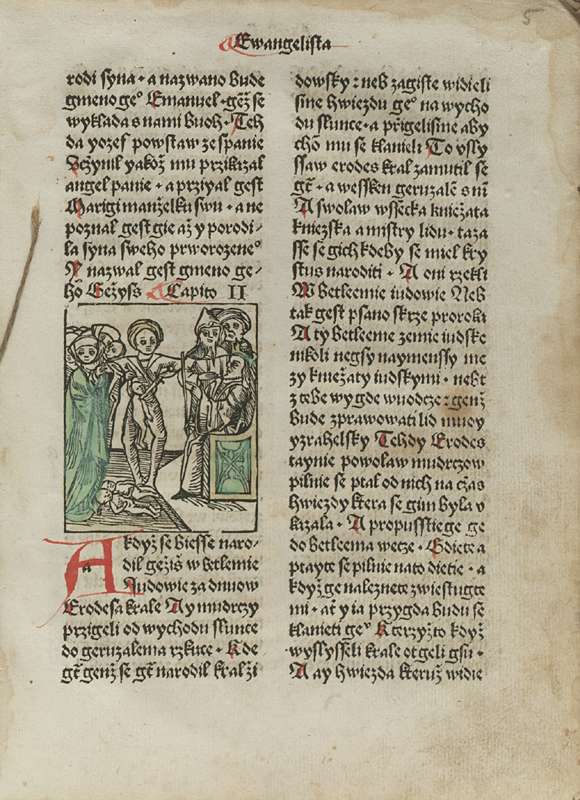 5
Ewangelista
rodi syna · a nazwano bude
gmeno geº Emanuel · gež se
wyklada s nami buoh · Teh
da yozef powstaw ze spanie
Včzynil yakož mu przikazal
angel panie · a prziyal gest
Marigi manželku swu · a ne
poznal gest gie až y porodi-
la syna sweho prworozeneº
Y nazwal gest gmeno ge-
ho Gežyšs Capito II
A když se biesse naro-
a dil gežis w betlemie
Iudowie za dnuow
Erodesa krale Ay mudrczy
przigeli od wychodu slunce
do geruzalema rzkuce · Kde
gt genž se gt narodil kral ži
dowsky : neb zagiste widieli
sine hwiezdu geº na wycho
du slunce · a przigelisine aby
cho mu se klanieli To vsly
ssaw erodes kral zamutil se
gt · a wessken geruzale s ni
A swolaw wssecka kniežata
kniežska a mistry lidu · taza
sse se gich kde by se miel kry
stus naroditi · A oni rzekli
W betleemie iudowie Neb
tak gest psano skrze proroka
A ty betleeme zemie iudske
nikoli negsy naymenssy me
zy kniežaty iudskymi · nebt
z tebe wygde wuodce : genž
bude zprawowati lid muoy
yzrahelsky Tehdy Erodes
taynie powolaw mudrczow
pilnie se ptal od nich na čzas
hwiezdy ktera se gim byla v
kazala · A propusstiege ge
do betleema wece · Gdiete a
ptayte se pilnie na to dietie · a
kdyžge naleznete zwiestugte
mi · ať y ia przygda budu se
klanieti geº Kteržyžto když
wyslysseli krale otgeli gsu ·
A ay hwiezda kteruž widie